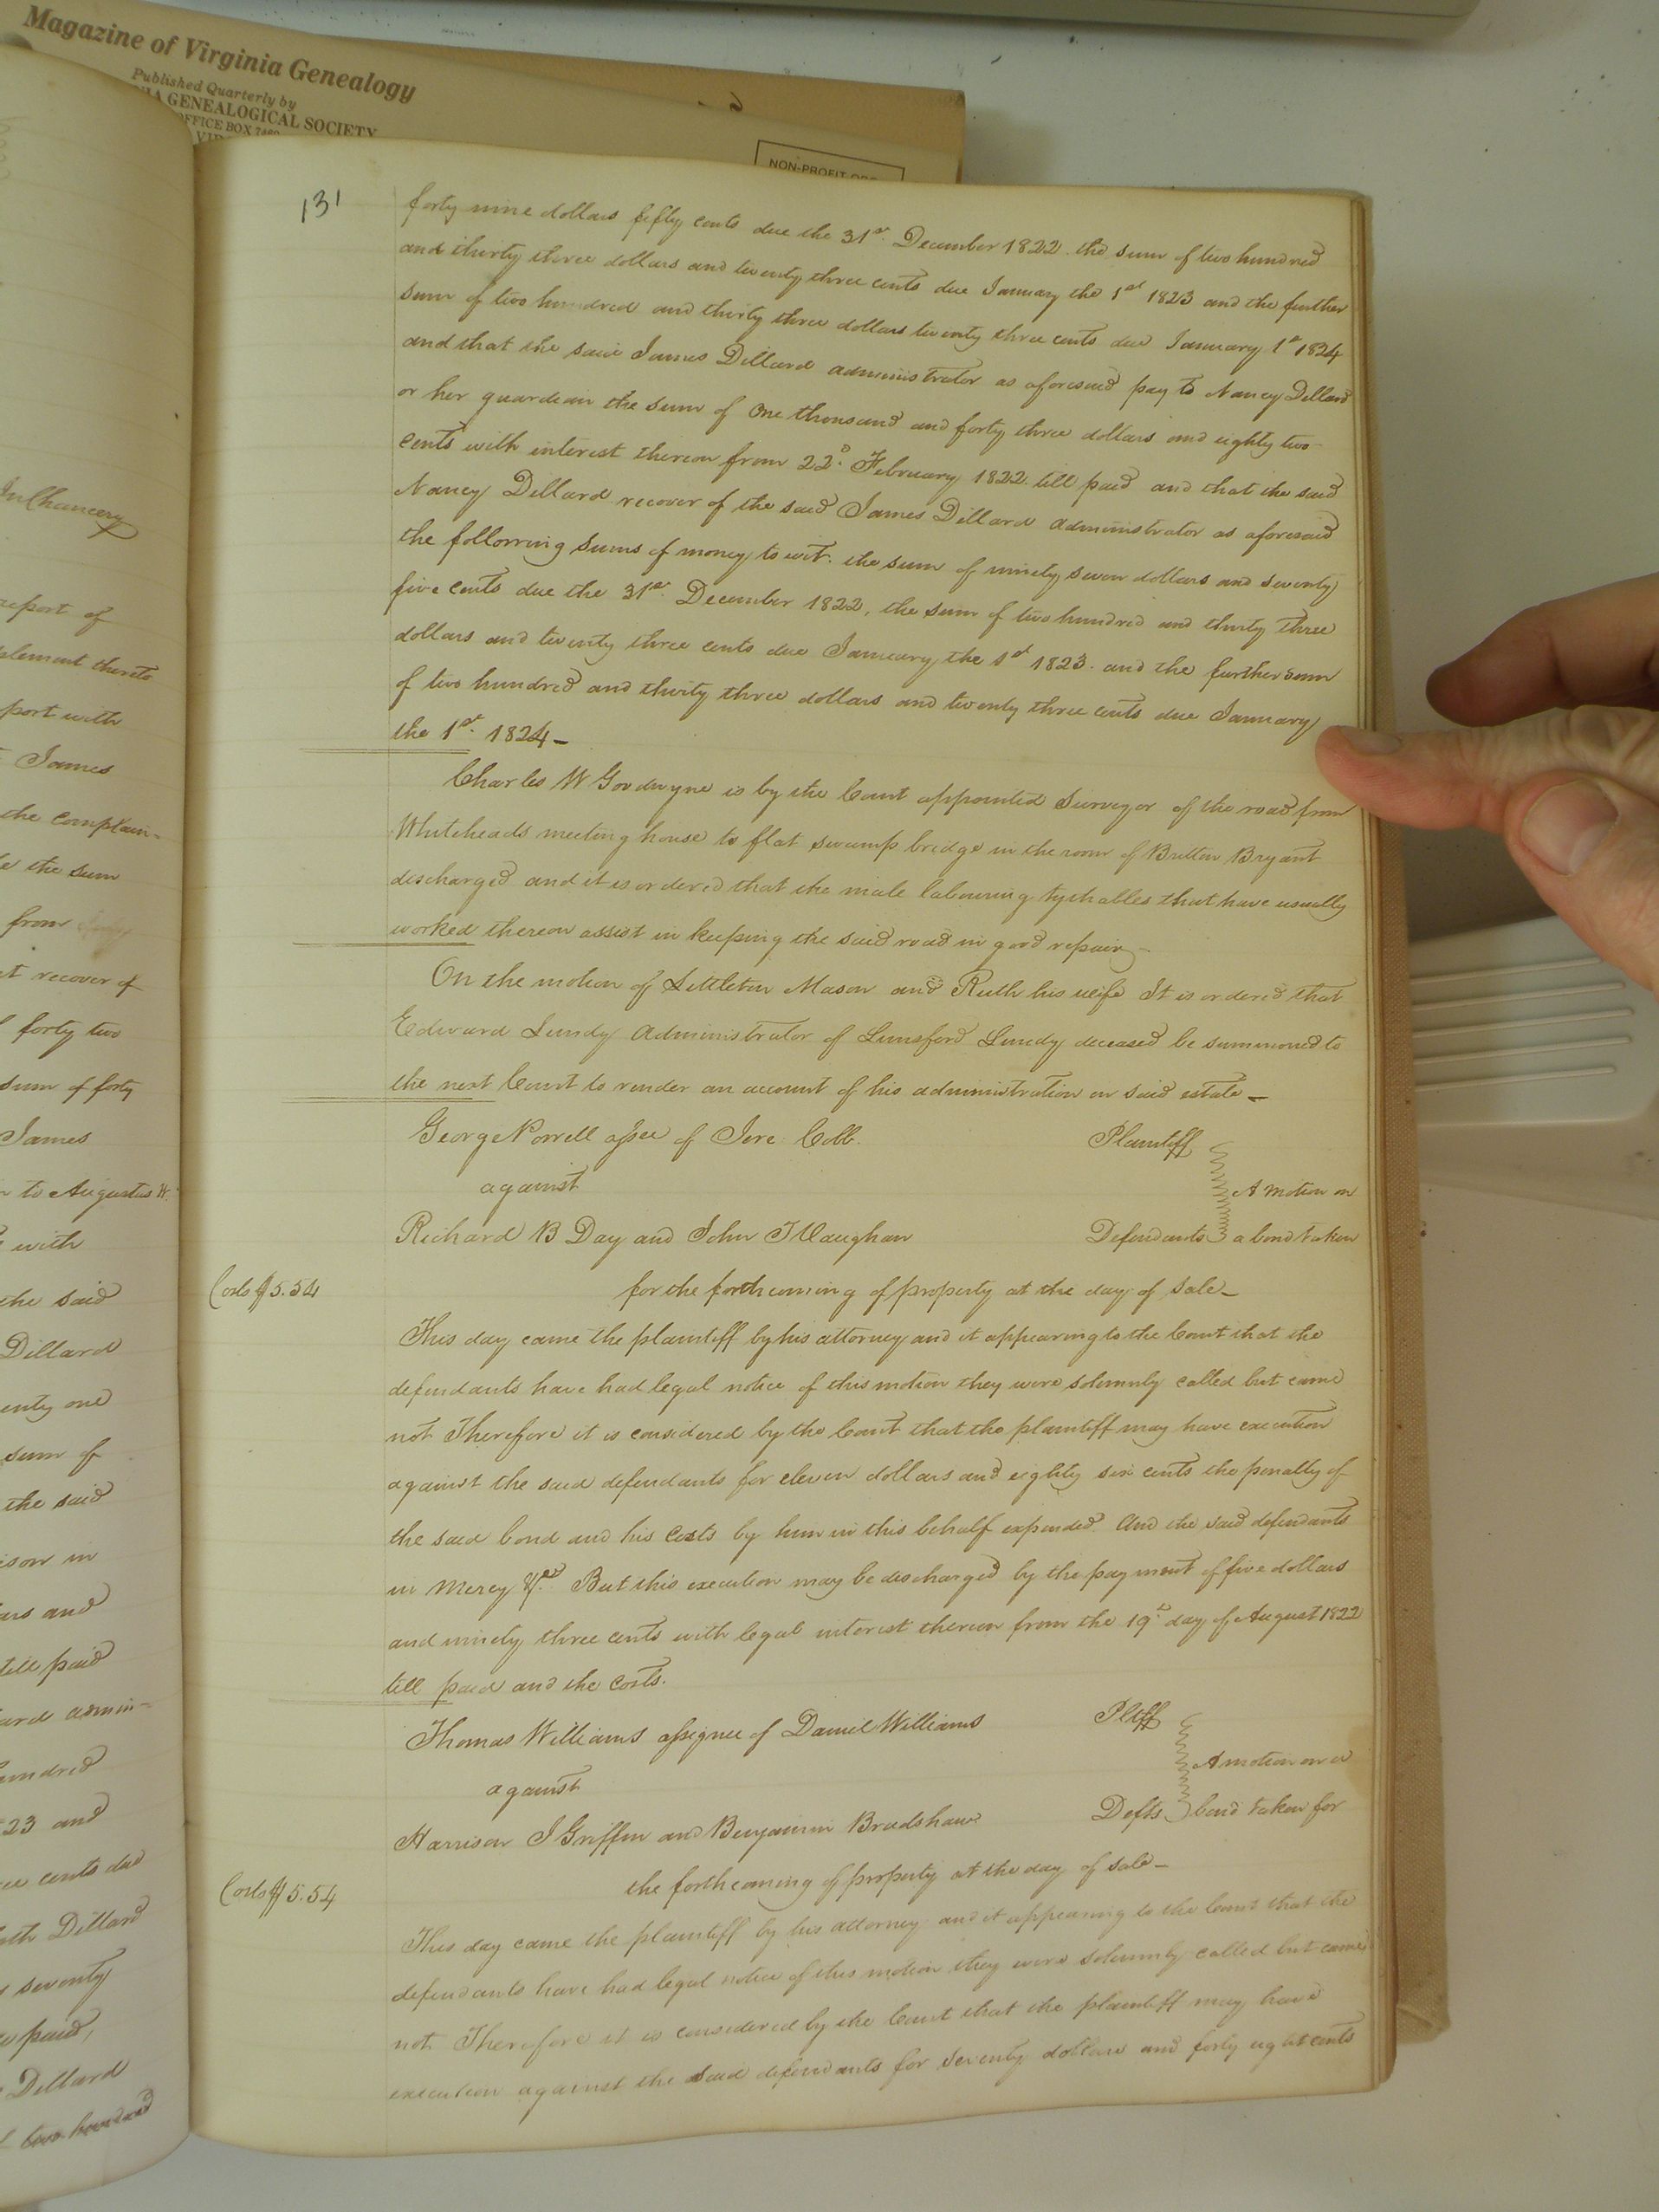 Magazine of Virginia Genealogy
Published Quarterly by
GENEALOGICAL SOCIETY
OFFICE BOX
NON-PROFIT ORG
In Chancery
report of
plement thereto
port with
James
the complain-
the sum
from
recover of
forty two
sum of forty
James
to Augustus W.
with
the said
Dillard
enty one
sum of
the said
ison in
ars and
till paid
ard admin-
undred
23 and
cents due
Dillard
seventy
paid,
Dillard
two hundred
131
forty nine dollars fifty cents due the 31st. December 1822. the sum of two hundred
and thirty three dollars and twenty three cents due January the 1st 1823 and the further
sum of two hundred and thirty three dollars twenty three cents due January 1st 1824
and that the said James Dillard administrator as aforesaid pay to Nancy Dillard
or her guardian the sum of One thousand and forty three dollars and eighty two
cents with interest thereon from 22d. February 1822. till paid and that the said
Nancy Dillard recover of the said James Dillard administrator as aforesaid
the following sums of money, to wit. the sum of ninety seven dollars and seventy
five cents due the 31st. December 1822, the sum of two hundred and thirty three
dollars and twenty three cents due January, the 1st 1823. and the further sum
of two hundred and thirty three dollars and twenty three cents due January
the 1st. 1824 –
Charles W Goodwyne is by the Court appointed Surveyor of the road from
Whiteheads meeting house to flat swamp bridge in the room of Britton Bryant
discharged and it is ordered that the male labouring tythables that have usually
worked thereon assist in keeping the said road in good repair –
On the motion of Littleton Mason and Ruth his wife It is ordered that
Edward Lundy Administrator of Lunsford Lundy deceased be summoned to
the next Court to render an account of his administration on said estate –
George Powell assee of Jere. Cobb. Plaintiff
against A motion on
Richard B Day and John T Vaughan Defendants a bond taken
Costs $5.54 for the forthcoming of property at the day of sale –
This day came the plaintiff by his attorney and it appearing to the Court that the
defendants have had legal notice of this motion they were solemnly called but came
not Therefore it is considered by the Court that the plaintiff may have execution
against the said defendants for eleven dollars and eighty six cents the penalty of
the said bond and his Costs by him in this behalf expended. And the said defendants
in Mercy &c. But this execution may be discharged by the payment of five dollars
and ninety three cents with legal interest thereon from the 19th. day of August 1822
till paid and the costs.
Thomas Williams assignee of Daniel Williams Pltff
against A motion on a
Harrison J Griffin and Benjamin Bradshaw Defts bond taken for
Costs $5.54 the forthcoming of property at the day of sale –
This day came the plaintiff by his attorney and it appearing to the Court that the
defendants have had legal notice of this motion they were solemnly called but came
not Therefore it is considered by the Court that the plaintiff may have
execution against the said defendants for seventy dollars and forty eight cents